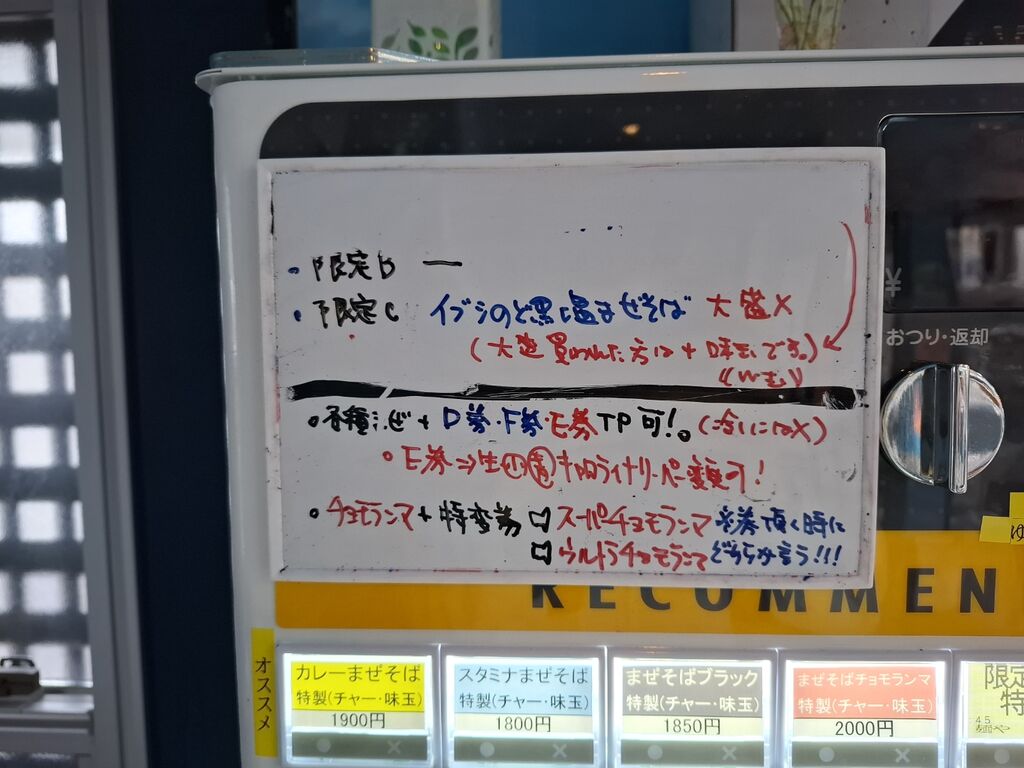 ・限定B ー
・限定C イブシのど黒塩まぜそば 大盛X
(大盛買われた方は+味玉です。)
・各種まぜ+D券・F券・E券TP可!。
・E券⇒生 キャロライナリーパー変更可!
・チョモランマ+特変券 スーパチョモランマ ※券頂く時に
ウルトラチョモランマ どちらか言う!!!
¥
おつり・返却
RECOMMEN
オススメ
カレーまぜそば
特製(チャー・味玉)
1900円
スタミナまぜそば
特製(チャー・味玉)
1800円
まぜそばブラック
特製(チャー・味玉)
1850円
まぜそばチョモランマ
特製(チャー・味玉)
2000円
限定
特
4.5
麺や
ゆ